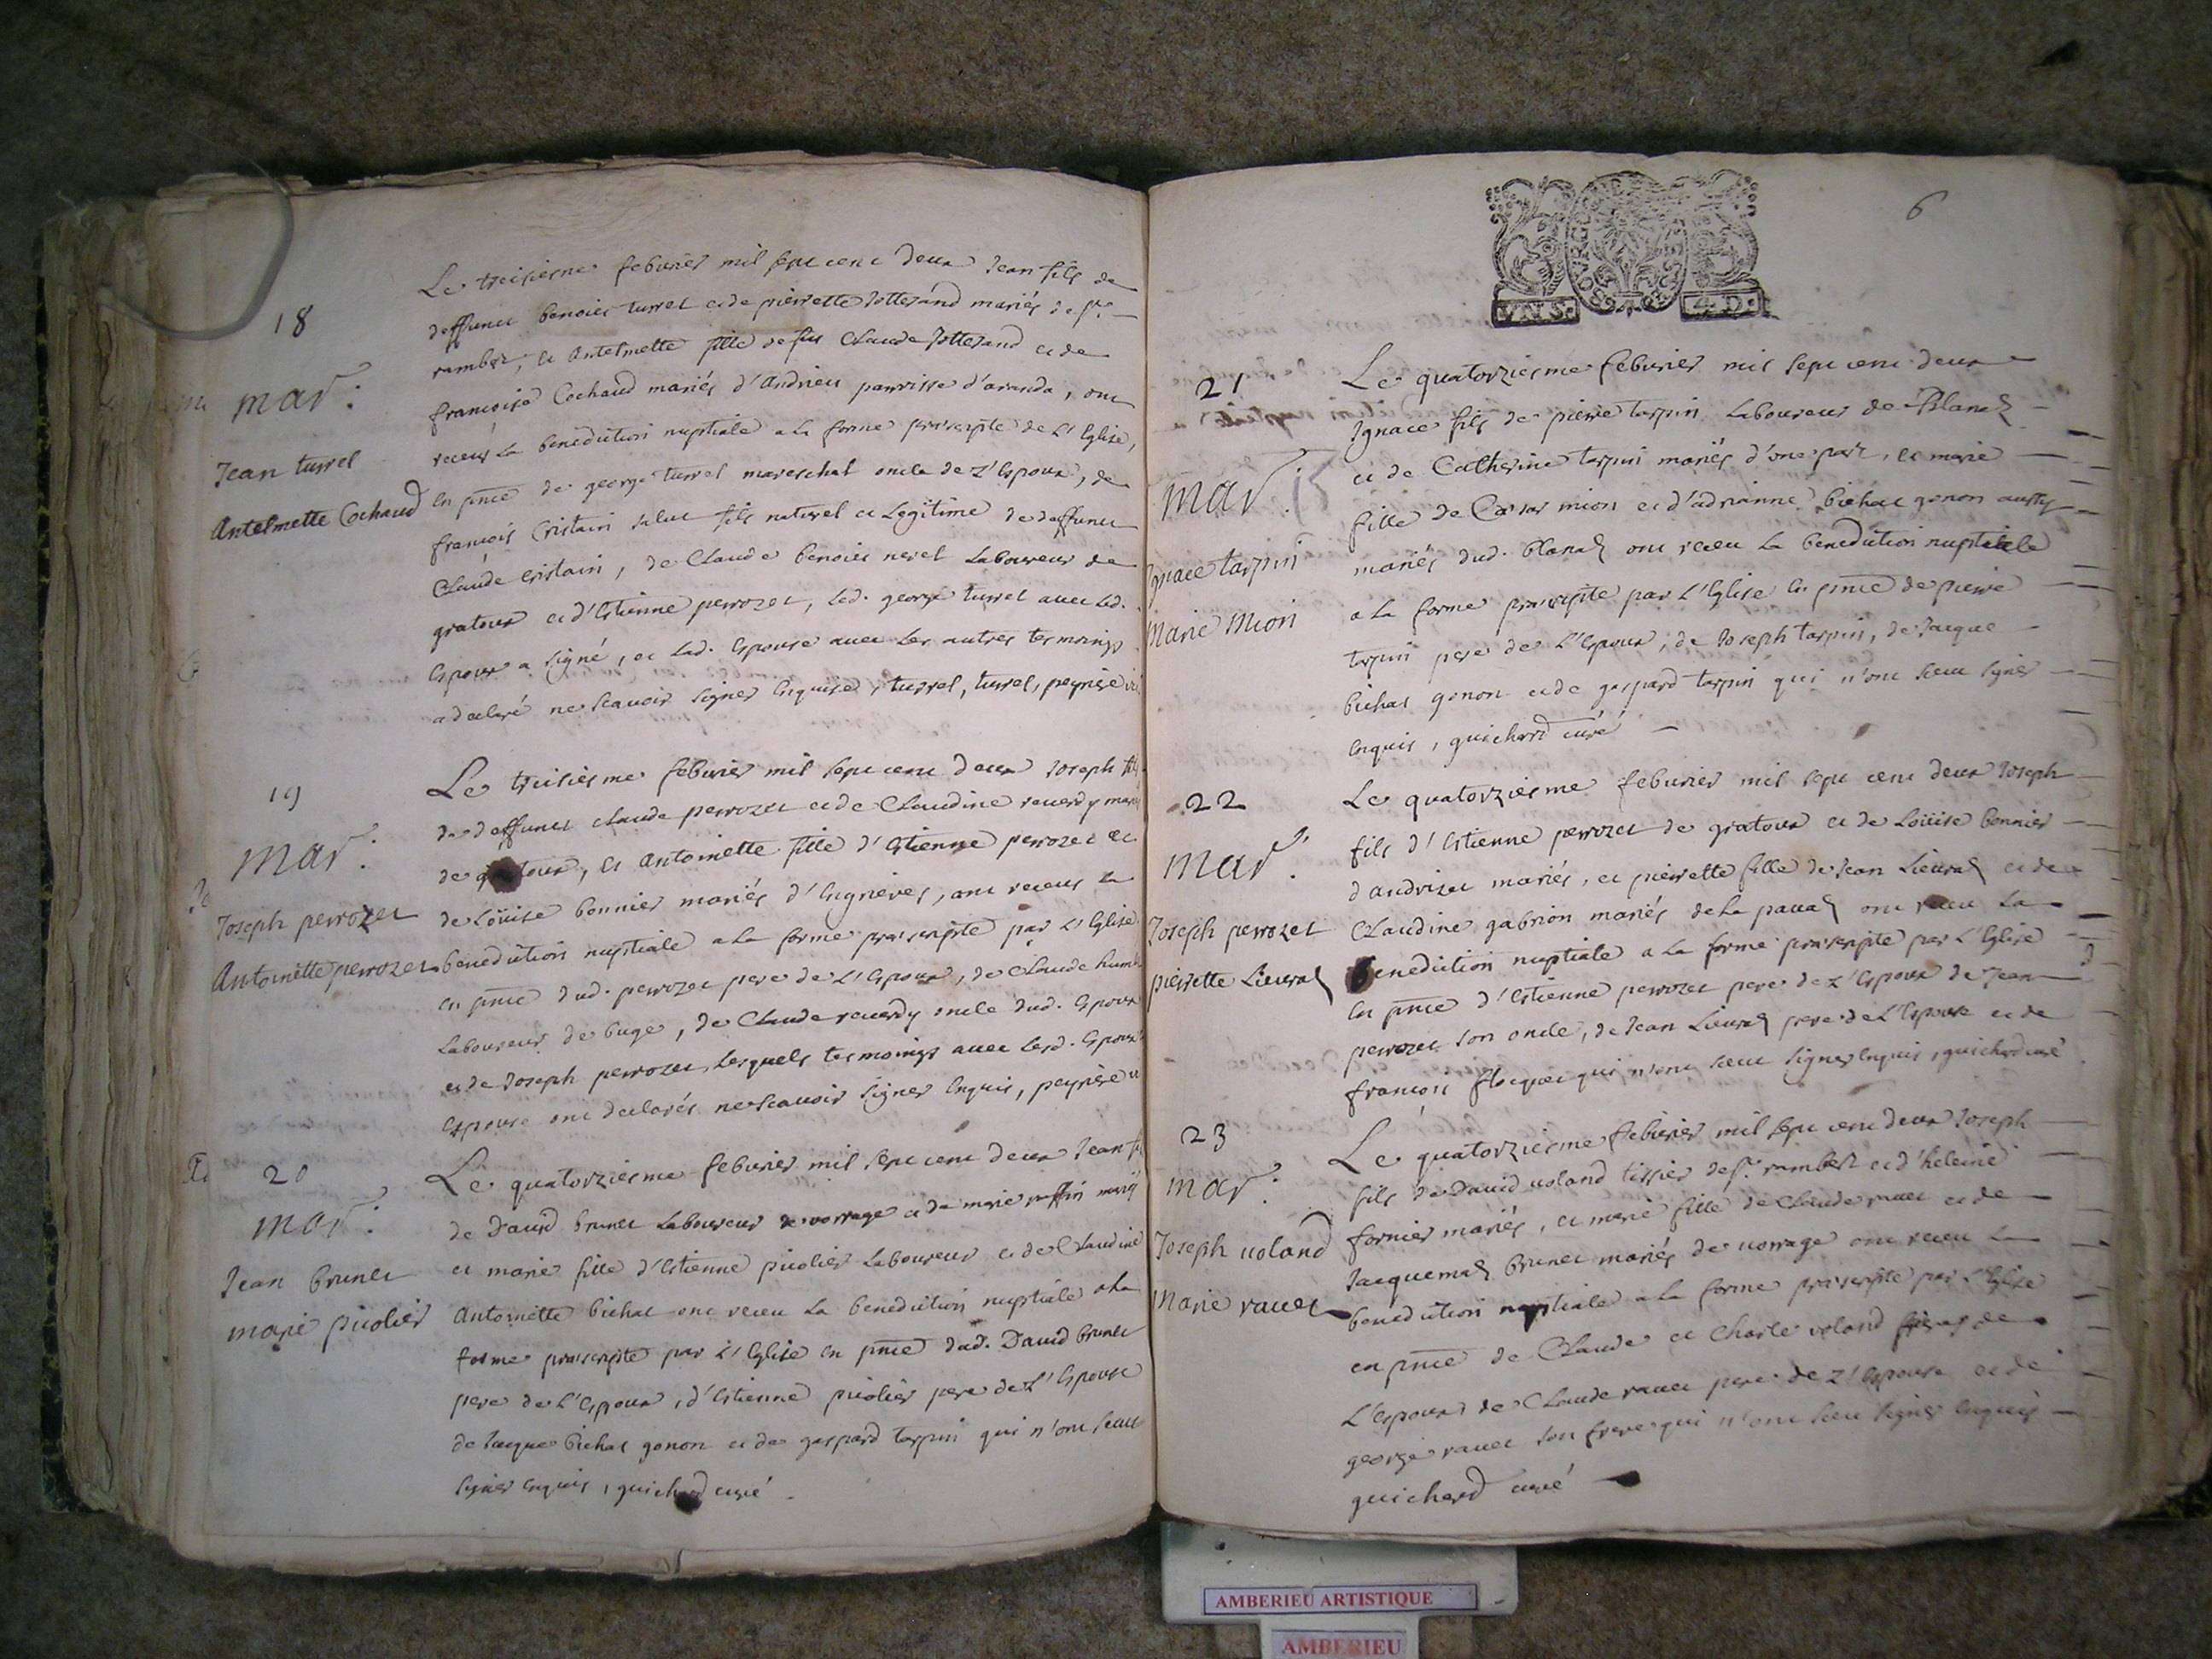 18
mar:
Jean turrel
Antelmette Cochaud
Le treisiesme feburier mil sept cent deux Jean fils de
deffunct benoict turrel et de pierrette Jotterand mariés de st
rambert, et Antelmette fille de fut Claude Jotterand et de
françoise Cochaud mariés d'Andrieu parroisse d'aranda, ont
receus La benediction nuptiale a la forme prescripte de L'Eglise,
En pnce de george turrel mareschal oncle de L'Espoux, de
françois Cristain fils naturel et Legitime de deffunct
Claude Cristain, de Claude benoict Laboureur de
gratoux et d'Estienne perrozet, Led. george turrel avec Led.
Espoux a signé, et Lad. Espouse avec Les autres tesmoings
a declaré ne scavoir signer Enquise, turrel, turrel, peyrise
19
mar:
Joseph perrozet
Antoinette perrozet
Le treisiesme feburier mil sept cent deux Joseph fils
de deffunct claude perrozet et de Claudine reuerdy mariés
de gratoux, Et Antoinette fille d'Estienne perrozet et
de Loüise bonnier mariés d'Engrieves, ont receus La
benediction nuptiale a la forme prescripte par L'Eglise
En pnce dud. perrozet pere de L'Espoux, de Claude
Laboureur de buge, de Claude reuerdy oncle dud. Espoux
et de Joseph perrozet, Lesquels tesmoings avec Lesd. Espoux
Espouse ont declarés ne scavoir signer Enquis, peyrise
20
mar:
Jean brunet
marie picolier
Le quatorziesme feburier mil sept cent deux Jean
de David brunet Laboureur de vorrage et de marie ruffin mariés
et marie fille d'Estienne picolier Laboureur et de Claudine
Antoinette bichat ont receu La benediction nuptiale a la
forme prescripte par L'Eglise En pnce dud. David brunet
pere de L'Espoux, d'Estienne picolier pere de L'Espouse
de Jacque bichat gonon et de gaspard tarpin qui n'ont sceu
signer Enquis, guichard curé
6
21
mar:
Ignace tarpin
Marie Mion
Le quatorziesme feburier mil sept cent deux
Ignace fils de pierre tarpin Laboureur de Blanaz
et de Catherine tarpin mariés d'une part, et marie
fille de Cæsar mion et d'adrianne bichat gonon aussy
mariés dud. blanaz ont receu La benediction nuptiale
a La forme prescripte par L'Eglise En pnce de pierre
tarpin pere de L'Espoux, de Joseph tarpin, de Jacque
bichat gonon et de gaspard tarpin qui n'ont sceu signer
Enquis, guichard curé
22
mar:
Joseph perrozet
pierrette Lieuraz
Le quatorziesme feburier mil sept cent deux Joseph
fils d'Estienne perrozet de gratoux et de Loüise bonnier
d'andrieu mariés, et pierrette fille de Jean Lieuraz et de
Claudine gabrion mariés de La pavaz ont receu La
benediction nuptiale a La forme prescripte par L'Eglise
En pnce d'Estienne perrozet pere de L'Espoux de Jean
perrozet son oncle, de Jean Lieuraz pere de L'Espouse et de
françois flocquet qui n'ont sceu signer Enquis, guichard curé
23
mar:
Joseph voland
Marie ravet
Le quatorziesme feburier mil sept cent deux Joseph
fils de David voland tissier de st rambert et d'heleine
fornier mariés, et marie fille de Claude ravet et de
Jacquemaz brunet mariés de vorrage ont receu La
benediction nuptiale a La forme prescripte par L'Eglise
en pnce de Claude et Charle voland freres de
L'Espoux de Claude ravet pere de L'Espouse et de
george ravet son frere qui n'ont sceu signer Enquis
guichard curé
AMBERIEU ARTISTIQUE
AMBERIEU